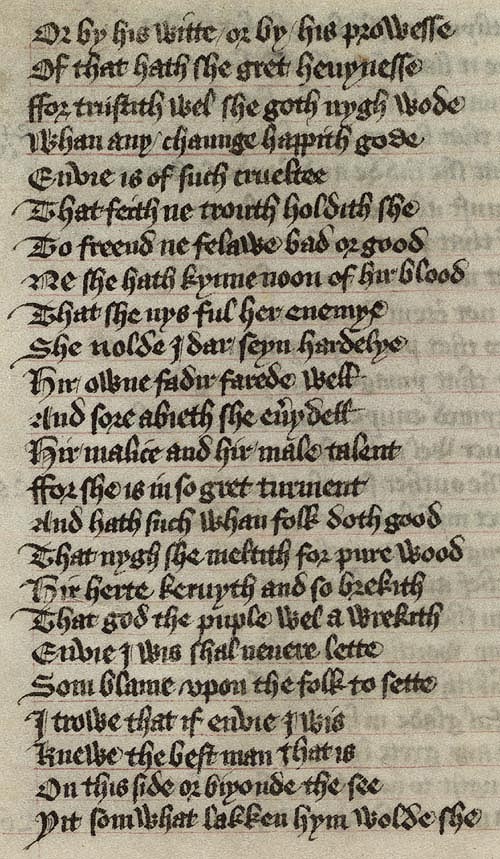 Or by his witte / or by / his prowesse
Of that hath she gret heuynesse
ffor trustith wel she goth nygh wode
Whan any / chaunge happith gode
Envie is of such crueltee
That feith ne trouth holdith she
To freend ne felawe bad or good
Ne she hath kynne noon of hir blood
That she nys ful her enemye
She nolde I dar seyn hardelye
Hir owne fadir farede well
And sore abieth she eu̾y dell
Hir malice and hir male talent
ffor she is in so gret turment
And hath such whan folk doth good
That nygh she meltith for pure wood
Hir herte keruyth and so brekith
That god the puple wel a wrekith
Envie I wis shal neuere lette
Som blame vpon the folk to sette
I trowe that if envie I wis
Knewe the best man that is
On this side or biyonde the see
Yit somwhat lakken hym wolde she